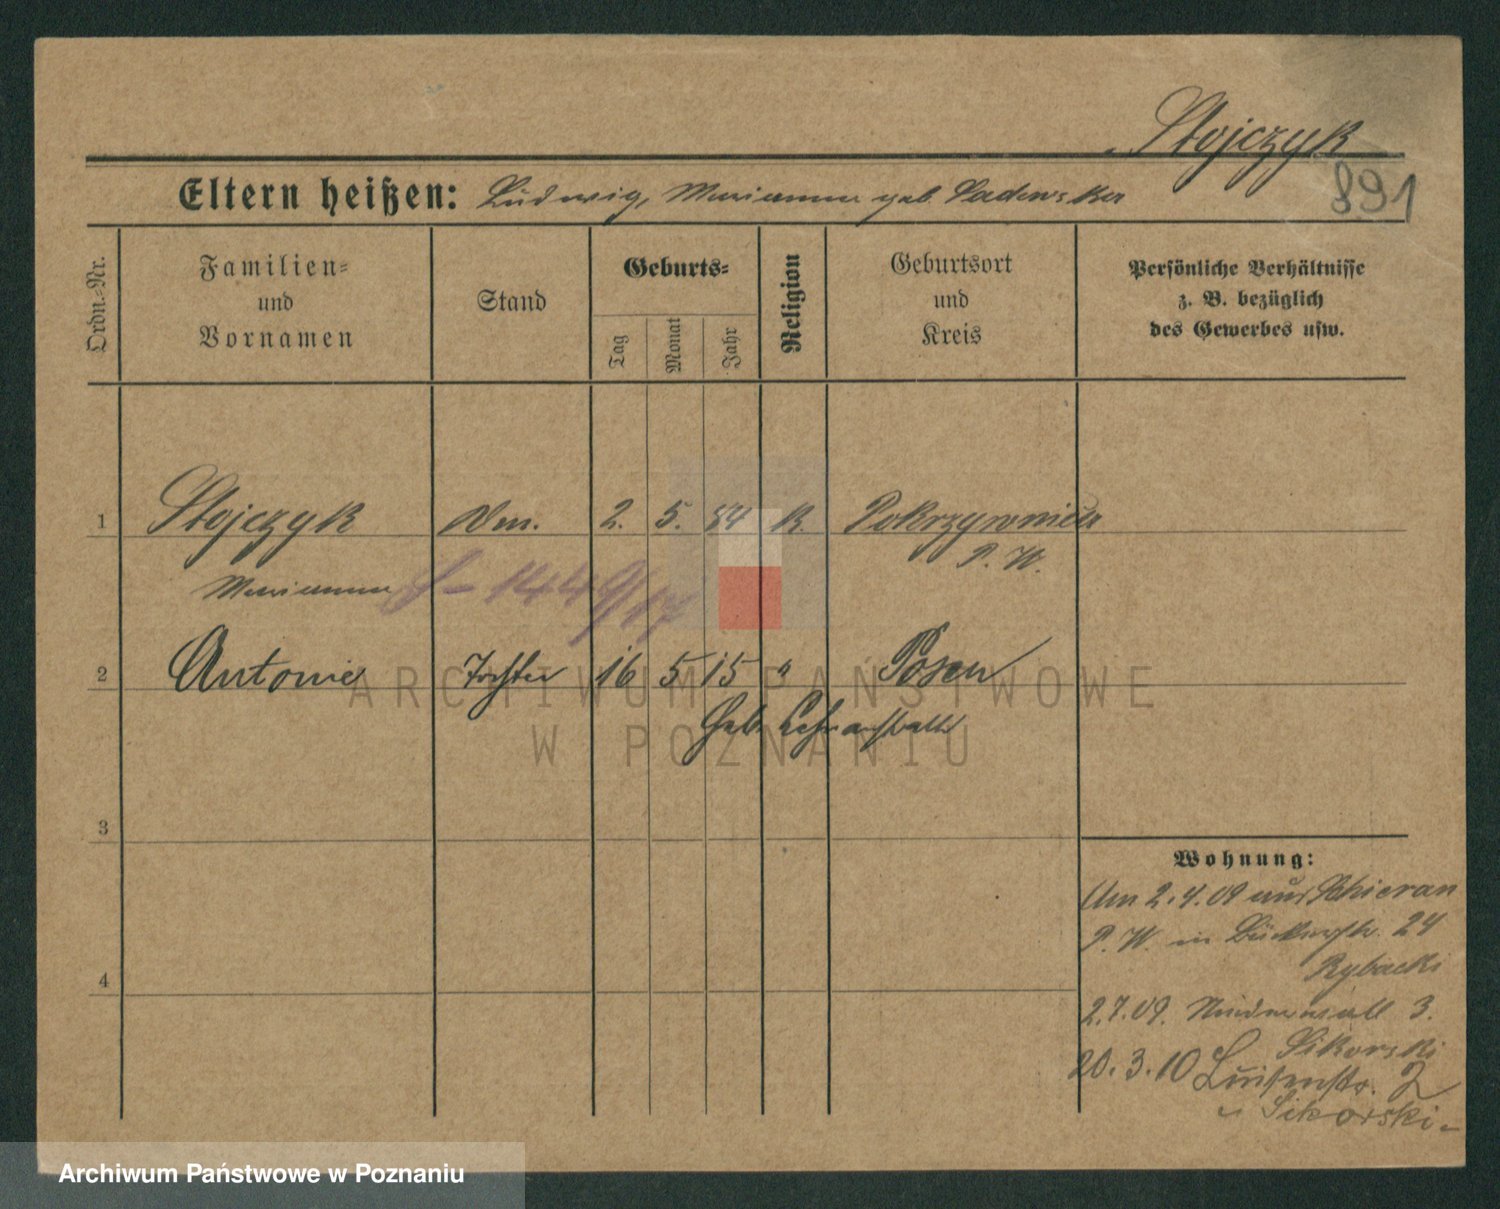 Stojczyk
891
Eltern heißen: Ludwig, Marianna geb Sadowska
Ordn.-Nr.
Familien-
und
Vornamen
Stand
Geburts-
Tag
Monat
Jahr
Religion
Geburtsort
und
Kreis
Persönliche Verhältnisse
z. B. bezüglich
des Gewerbes usw.
1 Stojczyk 2. 5. 84 K. Pokrzywnica
P. W.
Marianna 1449/17
2 Antonie Tochter 16 5 15 " Posen
Geb. Lehranstalt
3
4
Wohnung:
Am 2.4.09 aus
P. W. in 24
Rybacki
2.7.09. Niederwall 3.
Sikorski
20.3.10 Luisenstr. 2
" Sikorski -
ARCHIWUM PAŃSTWOWE
W POZNANIU
Archiwum Państwowe w Poznaniu